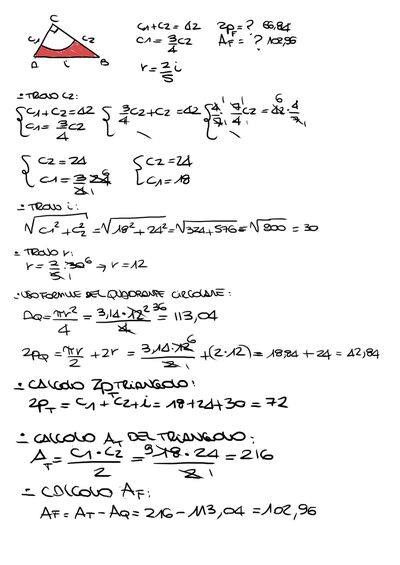 C
C1
C2
A
i
B
C1+C2 = 42
C1 = 3/4 C2
r = 2/5 i
2PF = ? 66,84
AF = ? 102,96
- TROVO C2:
{C1+C2 = 42
C1 = 3/4 C2
{3/4 C2+C2 = 42
\
{4/7 · 7/4 C2 = 42 6 · 4/7 1
\
{C2 = 24
C1 = 3/4 1 · 24 6
{C2 = 24
C1 = 18
- TROVO i:
√C1²+C2² = √18²+24² = √324+576 = √900 = 30
- TROVO r:
r = 2/5 1 · 30 6 → r = 12
- USO FORMULE DEL QUADRANTE CIRCOLARE:
AQ = πr²/4 = 3,14·12² 36/4 1 = 113,04
2PQ = πr/2 + 2r = 3,14·12 6/2 1 + (2·12) = 18,84 + 24 = 42,84
- CALCOLO 2PT TRIANGOLO:
2PT = C1 + C2 + i = 18+24+30 = 72
- CALCOLO AT DEL TRIANGOLO:
AT = C1·C2/2 = 9 18·24/2 1 = 216
- CALCOLO AF:
AF = AT - AQ = 216 - 113,04 = 102,96